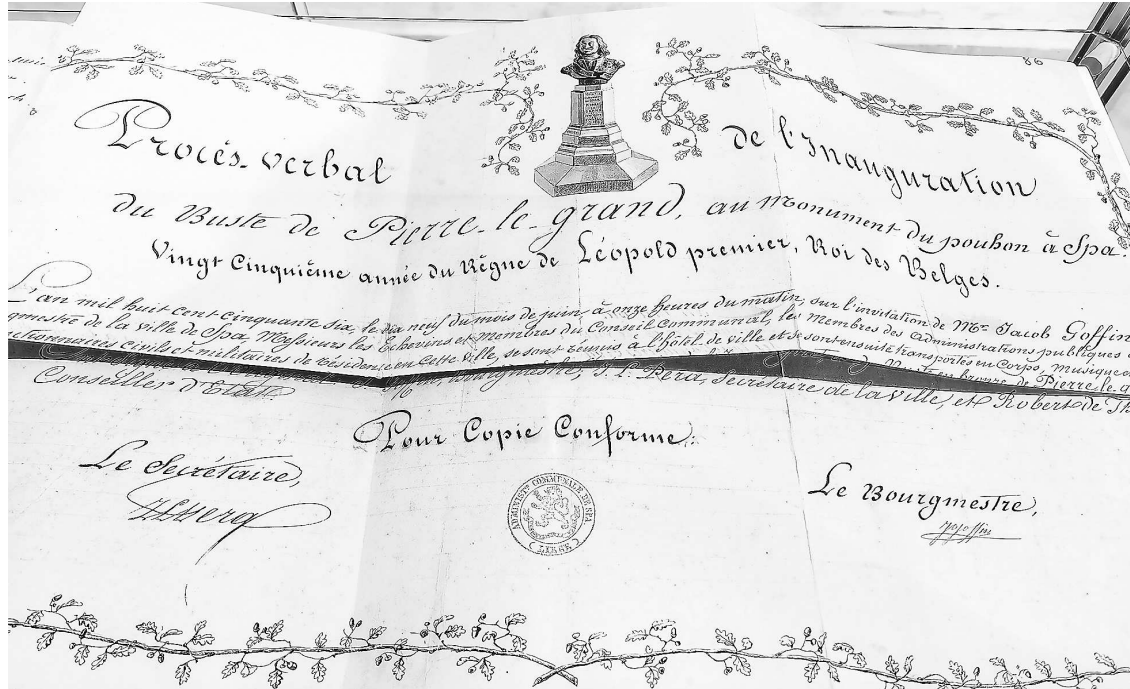 86
Procès-verbal de l'Inauguration
du Buste de Pierre-le-grand, au Monument du pouhon à Spa.
Vingt Cinquième année du Règne de Léopold premier, Roi des Belges.
L'an mil huit cent cinquante six, le dix neuf du mois de juin, à onze heures du matin, sur l'invitation de Mr Jacob Goffin
de la ville de Spa, Messieurs les Echevins et membres du Conseil Communal, les Membres des administrations publiques
civils et militaires de résidence en cette ville, se sont réunis à l'hôtel de ville et se sont ensuite transportés en corps, musique
en bronze de Pierre le
Conseiller d'Etat
Bourgmestre, J. L. Pera, Secrétaire de la ville, et Robert de
Pour Copie Conforme:
Le Secrétaire,
Le Bourgmestre,
ADMINISTon COMMUNALE DE SPA
(LIEGE)